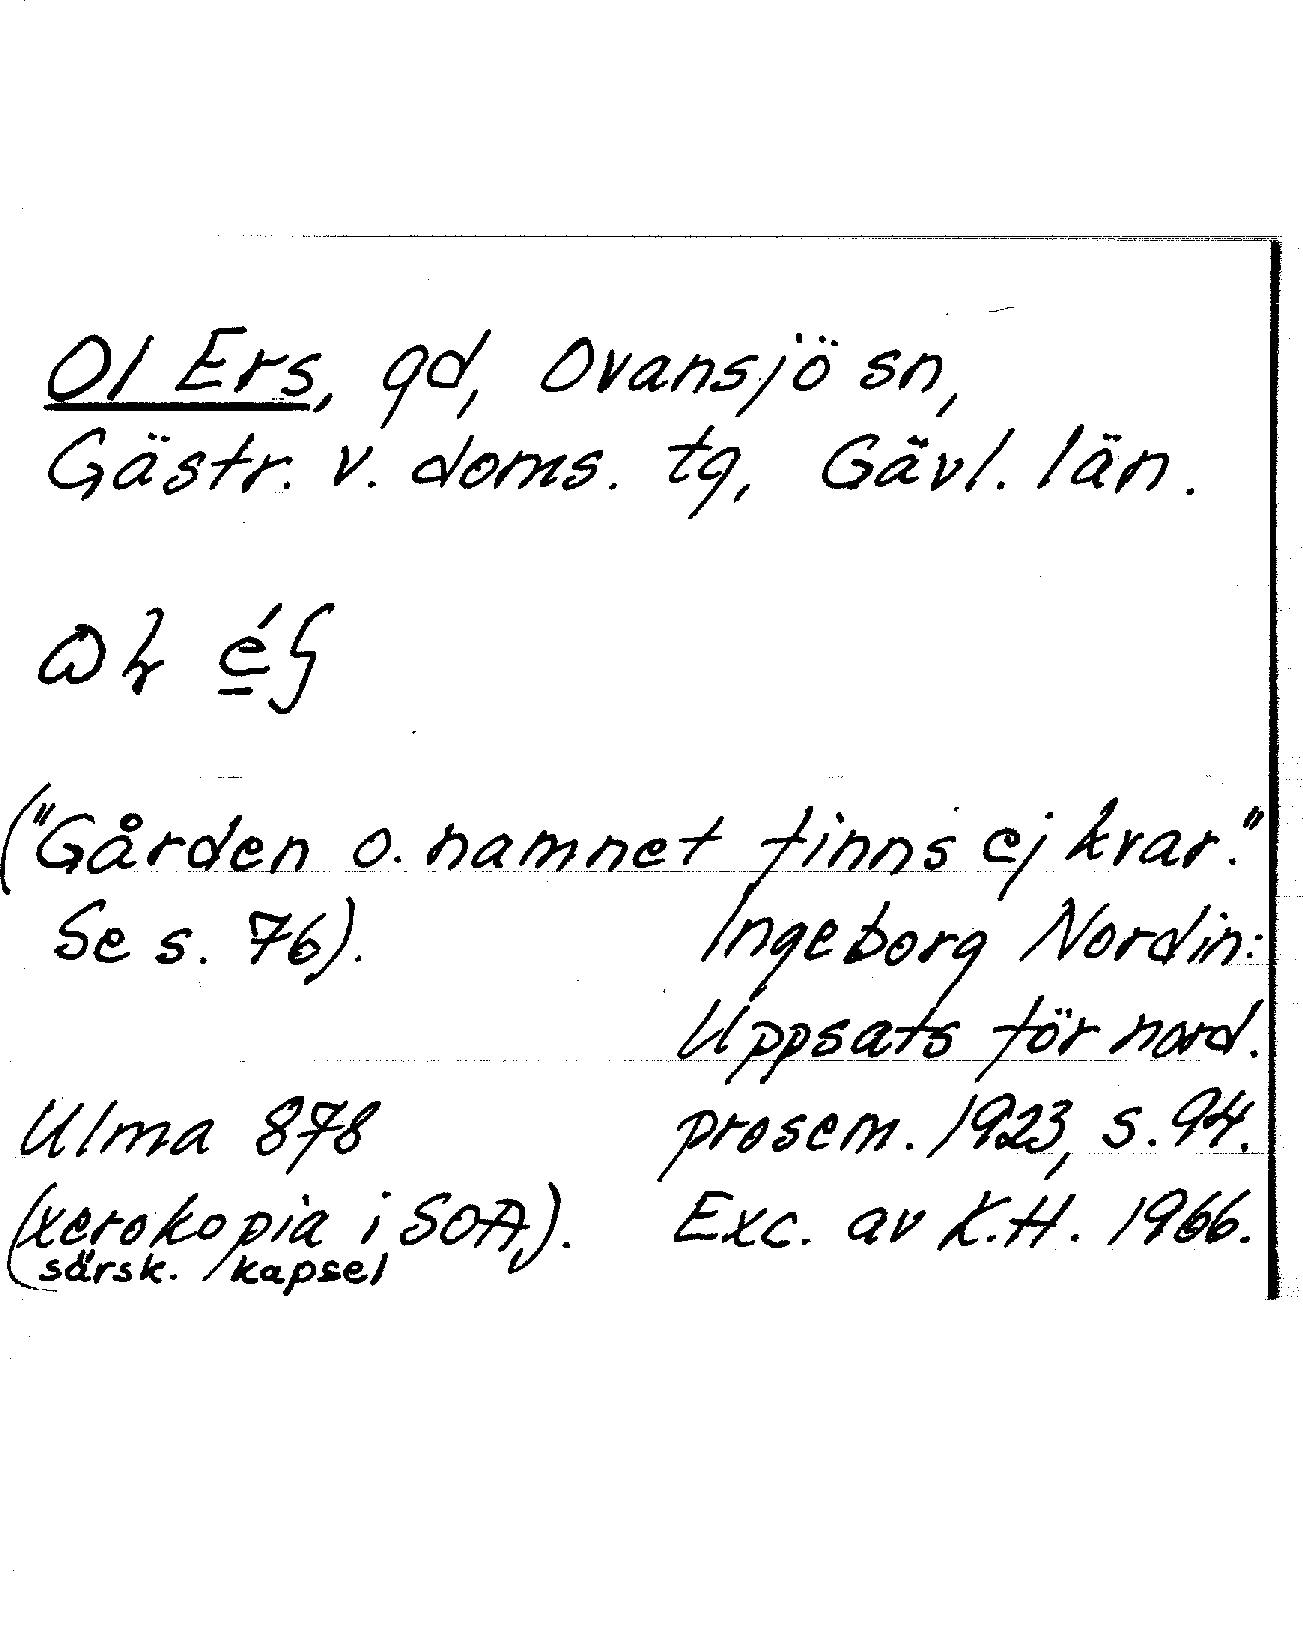 Ol Ers, gd, Ovansjö sn,
Gästr. v. doms. tg, Gävl. län.
("Gården o. namnet finns ej kvar."
Se s. 76).
Ingeborg Nordin:
Uppsats för nord.
prosem. 1923, s. 94.
Ulma 878
(xerokopia i SOA).
särsk. kapsel
Exc. av K.H. 1966.